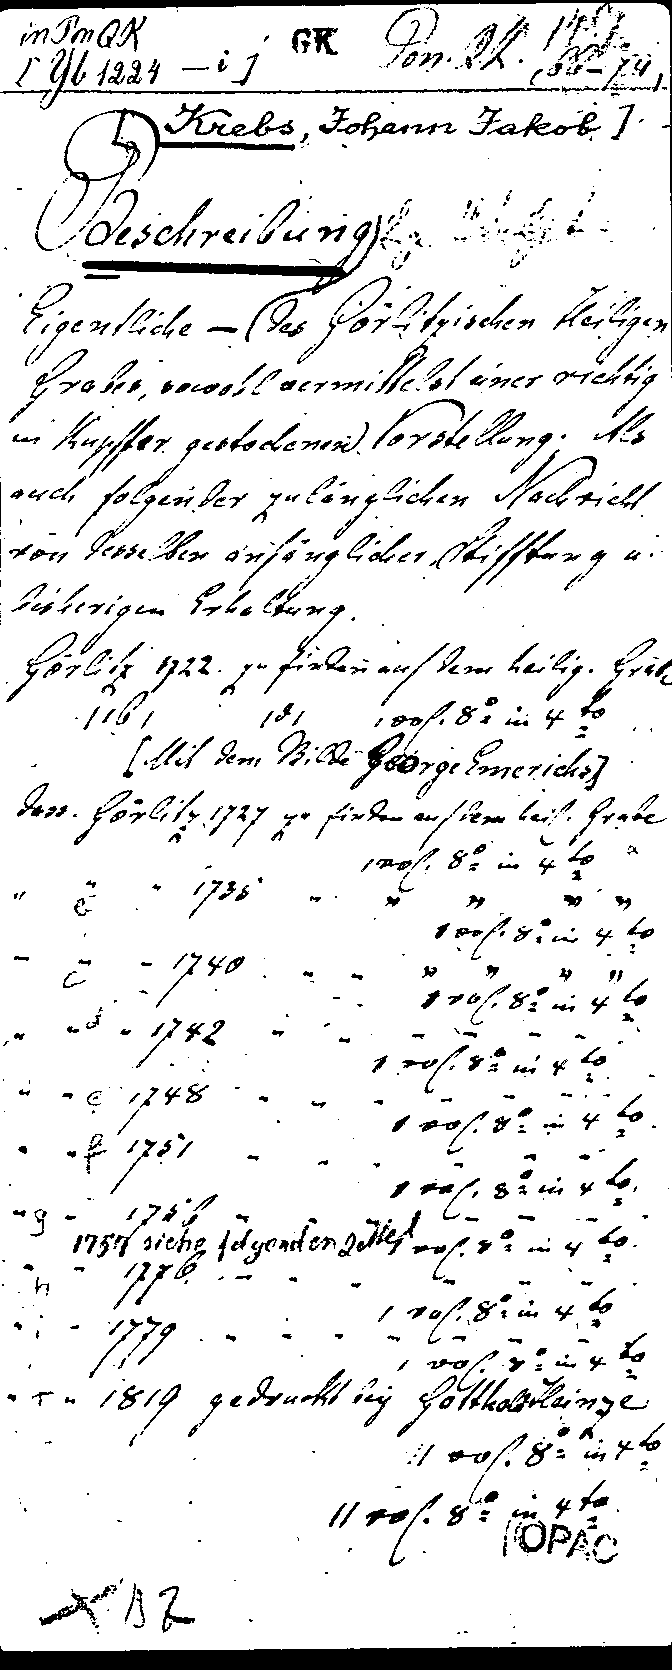 in Pm QK GK Pon. 2K.
[Yb 1224 - i]
[Krebs, Johann Jakob]
Beschreibung
Eigentliche — (des Görlitzischen Heiligen
Grabes, sowohl vermittelst einer richtig
in Kupffer gestochenen) Vorstellung. Als
auch folgender zulänglichen Nachricht
von desselben anfänglicher Stifftung u.
bisherigen Erhaltung.
Görlitz 1722. zu finden auf dem heilig. Grabe
8° in 4to
[Mit dem Bilde George Emerichs]
dass. Görlitz 1727 zu finden auf dem heil. Grabe
8° in 4to
" " " 1735 " " " " "
8° in 4to
" c " 1740 " " " " " "
8° in 4to
" " d " 1742 " " " " "
8° in 4to
" " e 1748 " " " " "
8° in 4to
" " f 1751 " " " " "
8° in 4to
" g " 1756 " " " "
1757 siehe folgenden Zettel 8° in 4to
" h " 1776 " " " " "
8° in 4to
" i " 1779 " " " " " "
8° in 4to
" " 1819 gedruckt bey Gotthold Heinze
8° in 4to
8° in 4to
OPAC